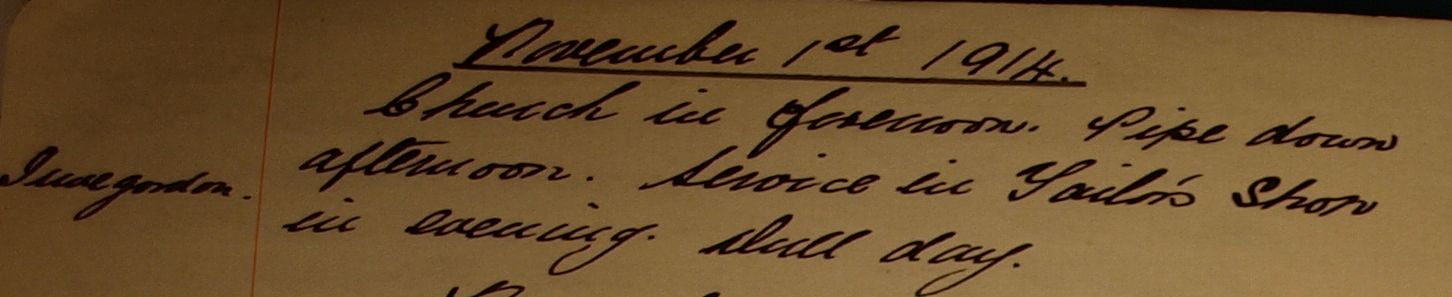 November 1st 1914.
Church in forenoon. Pipe down
Invergordon.
afternoon. Service in Tailor's Shop
in evening. Dull day.